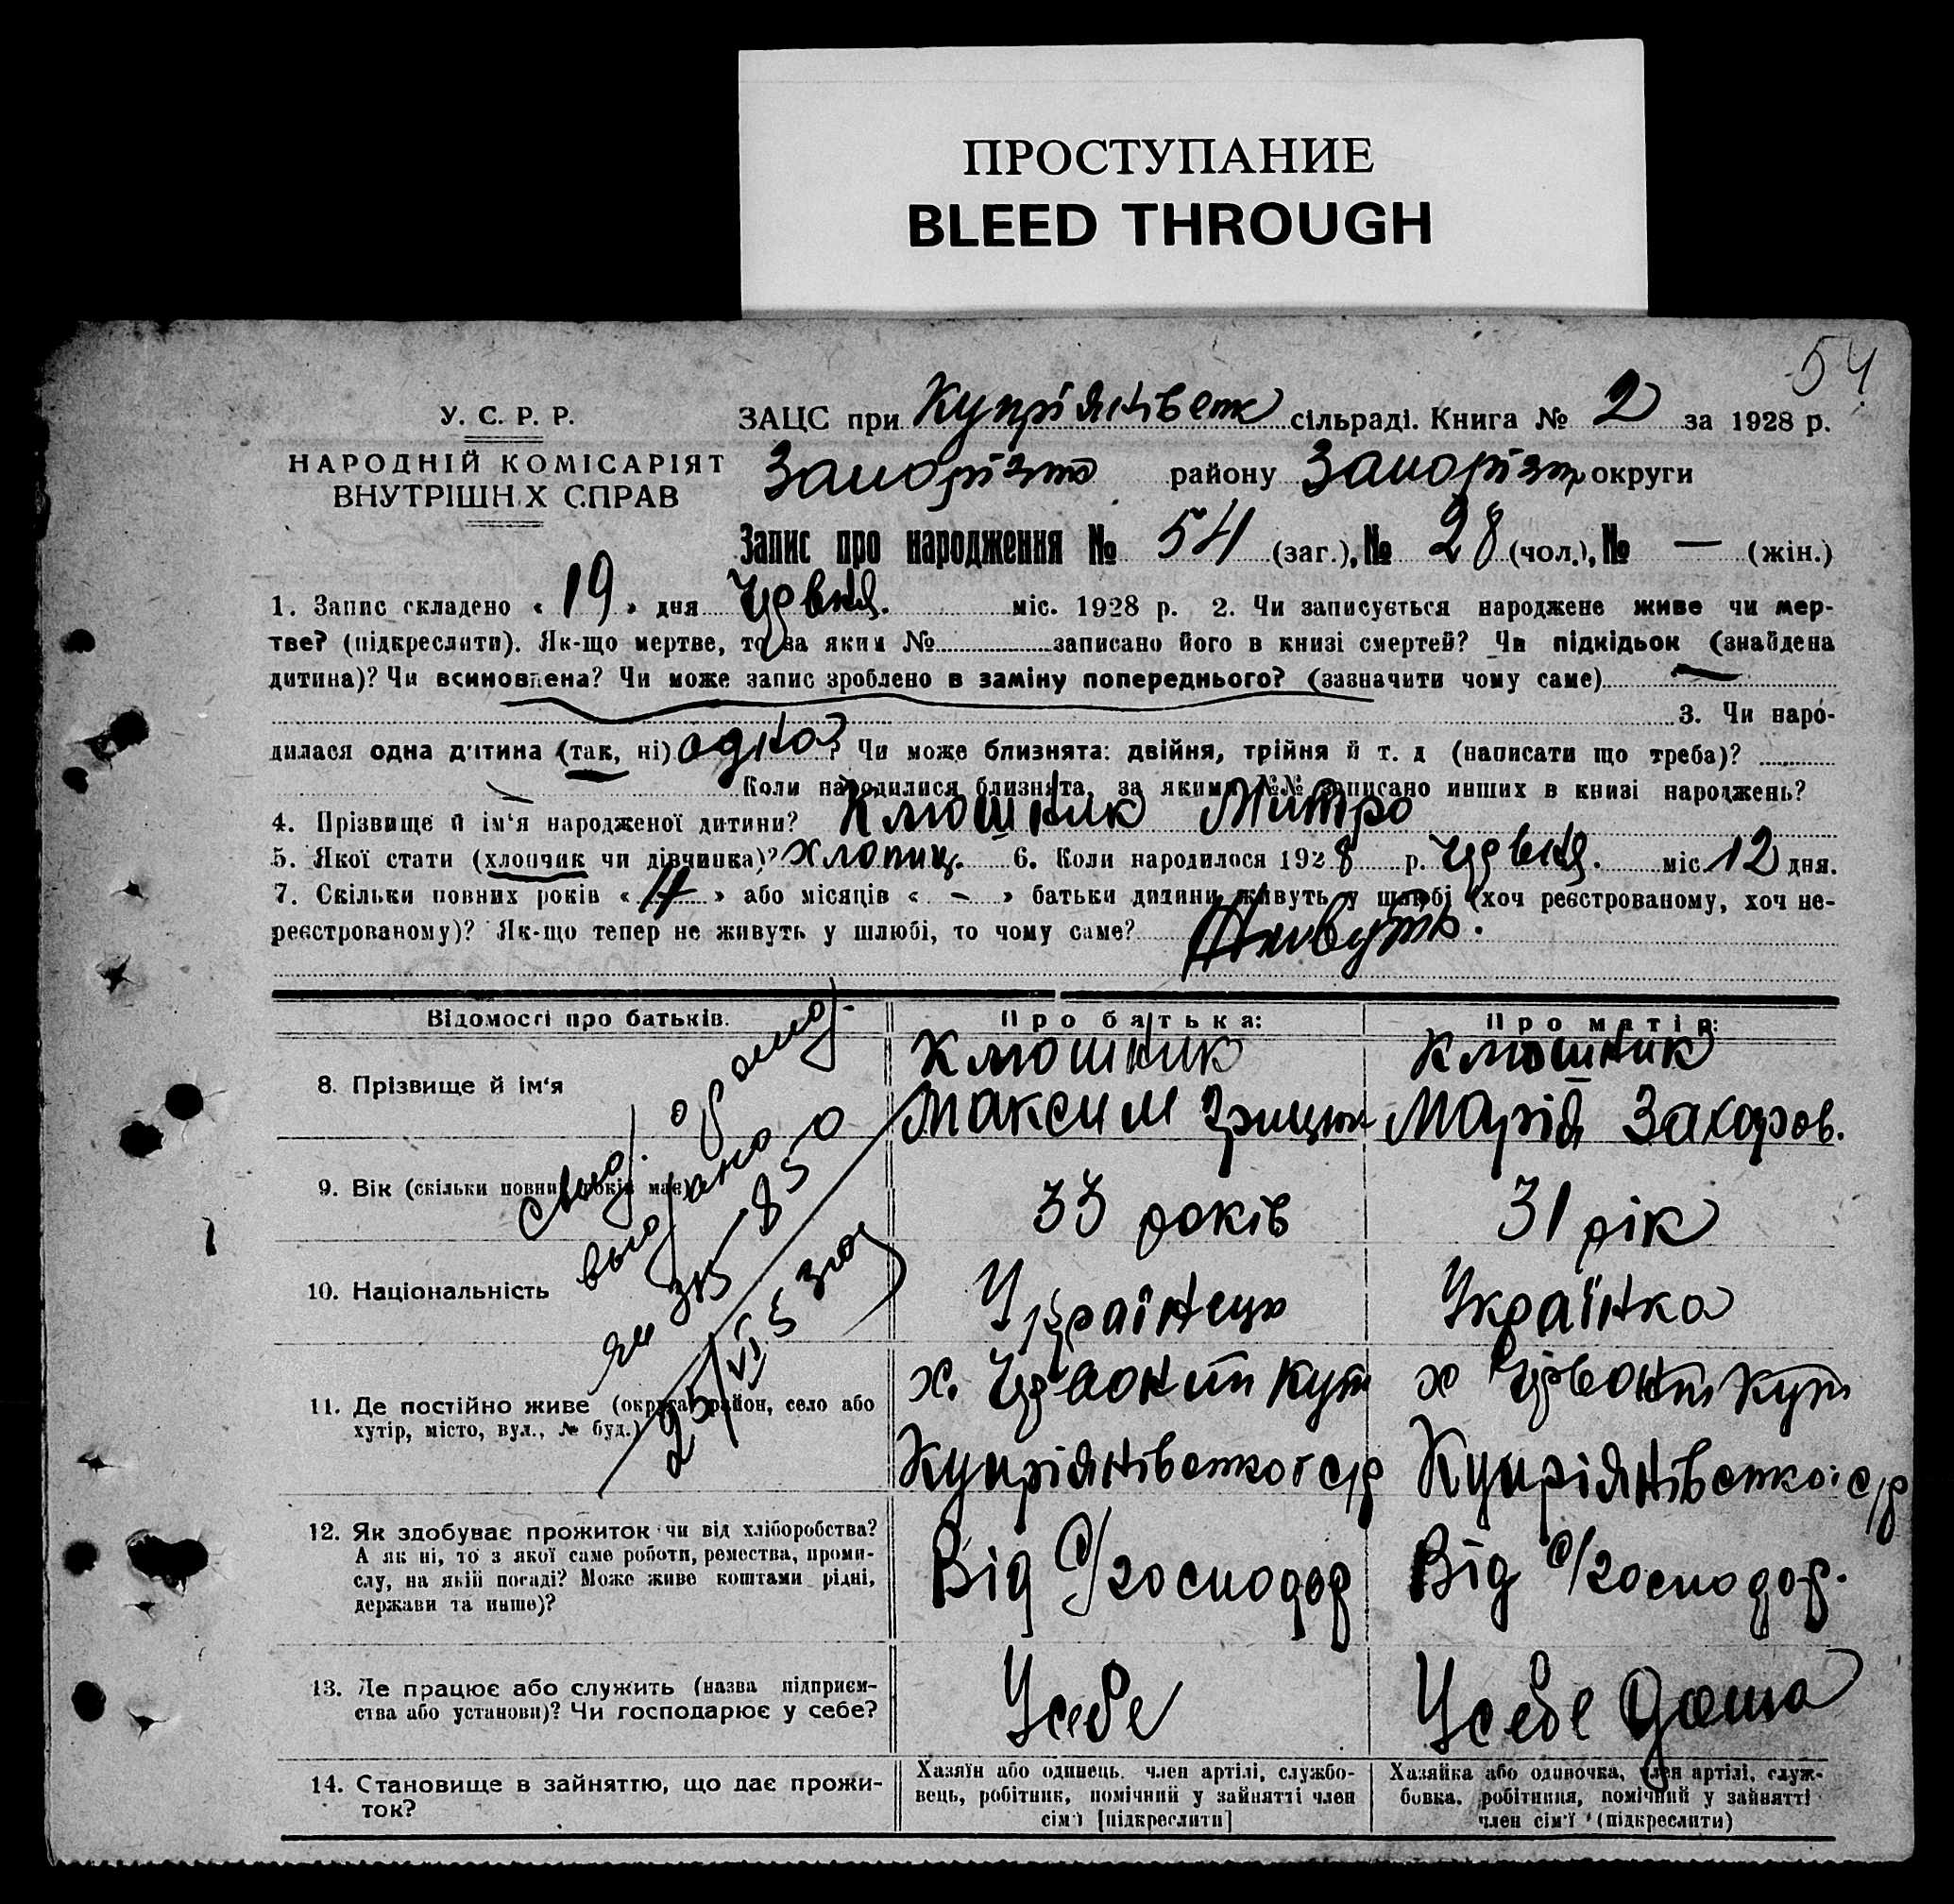 ПРОСТУПАНИЕ
BLEED THROUGH
54
У. С. Р. Р.
НАРОДНІЙ КОМІСАРІЯТ
ВНУТРІШН.Х СПРАВ
ЗАЦС при Купріянівськ сільраді. Книга № 2 за 1928 р.
Запорізьк району Запорізьк округи
Запис про народження № 54 (заг.), № 28 (чол.), № — (жін.)
1. Запис складено « 19 » дня Червня. міс. 1928 р. 2. Чи записується народжене живе чи мер-
тве? (підкреслити). Як-що мертве, то за яким № записано його в книзі смертей? Чи підкідьок (знайдена
дитина)? Чи всиновлена? Чи може запис зроблено в заміну попереднього? (зазначити чому саме) —
3. Чи наро-
дилася одна дитина (так, ні) одна? Чи може близнята: двійня, трійня й т. д (написати що треба)?
— Коли народилися близнята, за якими №№ записано инших в книзі народжень?
4. Прізвище й ім'я народженої дитини? Клюшник Митро
5. Якої стати (хлопчик чи дівчинка)? хлопиц. 6. Коли народилося 1928 р. Червня. міс 12 дня.
7. Скільки повних років « 4 » або місяців « – » батьки дитини живуть у шлюбі (хоч реєстрованому, хоч не-
реєстрованому)? Як-що тепер не живуть у шлюбі, то чому саме? Живуть.
Відомості про батьків. Про батька: Про матір:
8. Прізвище й ім'я
Клюшник
Максим Грицьк
Клюшник
Марія Захаров.
9. Вік (скільки повних років має)
33 років
31 рік
10. Національність
Українець
Українка
11. Де постійно живе (округа, район, село або
хутір, місто, вул., № буд.)
х. Червоний кут
Купріянівської с/р
х Червоний кут
Купріянівської с/р
12. Як здобуває прожиток чи від хліборобства?
А як ні, то з якої саме роботи, ремества, проми-
слу, на якій посаді? Може живе коштами рідні,
держави та инше)?
Від С/господар
Від С/господар.
13. Де працює або служить (назва підприєм-
ства або установи)? Чи господарює у себе?
У себе
У себе дома
14. Становище в зайняттю, що дає прожи-
ток?
Хазяїн або одинець. член артілі, службо-
вець, робітник, помічний у зайнятті член
сім'ї [підкреслити]
Хазяйка або одиночка, член артілі, служ-
бовка, робітниця, помічний у зайнятті
член сім'ї (підкреслити)